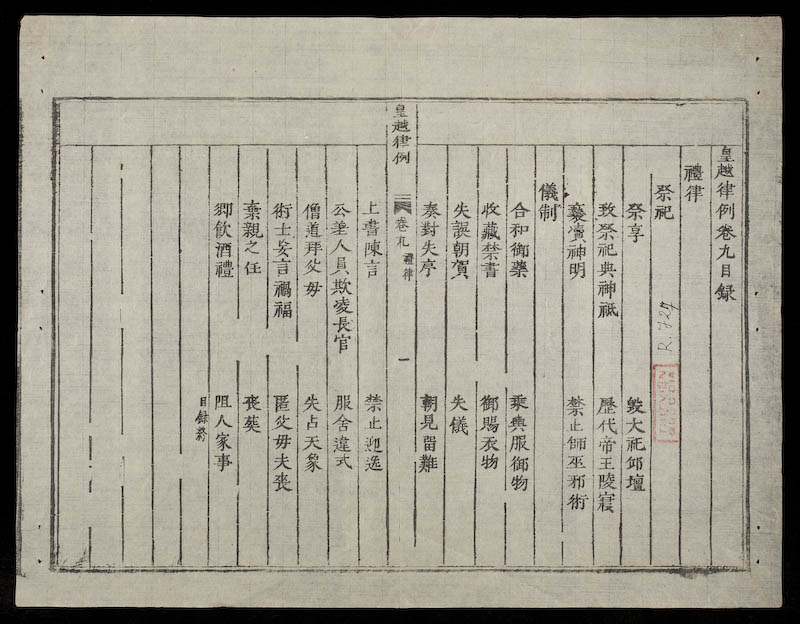 皇越律例卷九目録
禮律
祭祀
祭享 毀大祀邱壇
致祭祀典神祗 歷代帝王陵寢
褻瀆神明 禁止師巫邪術
儀制
合和御藥 乘輿服御物
收藏禁書 御賜衣物
失誤朝賀 失儀
奏對失序 朝見留難
皇越律例 卷九 禮律 一
上書陳言 禁止迎送
公差人員欺凌長官 服舍違式
僧道拜父母 失占天象
術士妄言禍福 匿父母夫喪
棄親之任 喪葬
鄉飲酒禮 阻人家事
目錄終
R.727